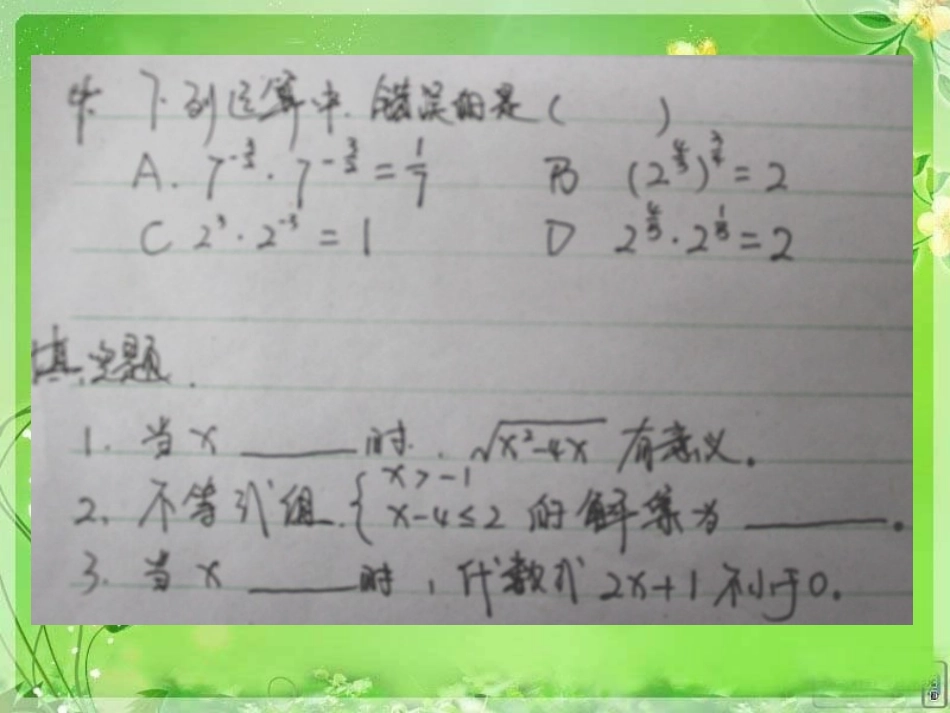 4. 下列运算中.错误的是( )
A. 7^{-3/2}·7^{-3/2}=1/7 B (2^{4/3})^{3/4}=2
C 2^3·2^{-3}=1 D 2^{4/5}·2^{1/5}=2
填空题.
1. 当x ____时.√(x²-4x) 有意义.
2. 不等式组{x>-1
x-4≤2 的解集为 ____.
3. 当x ____时,代数式2x+1不小于0.